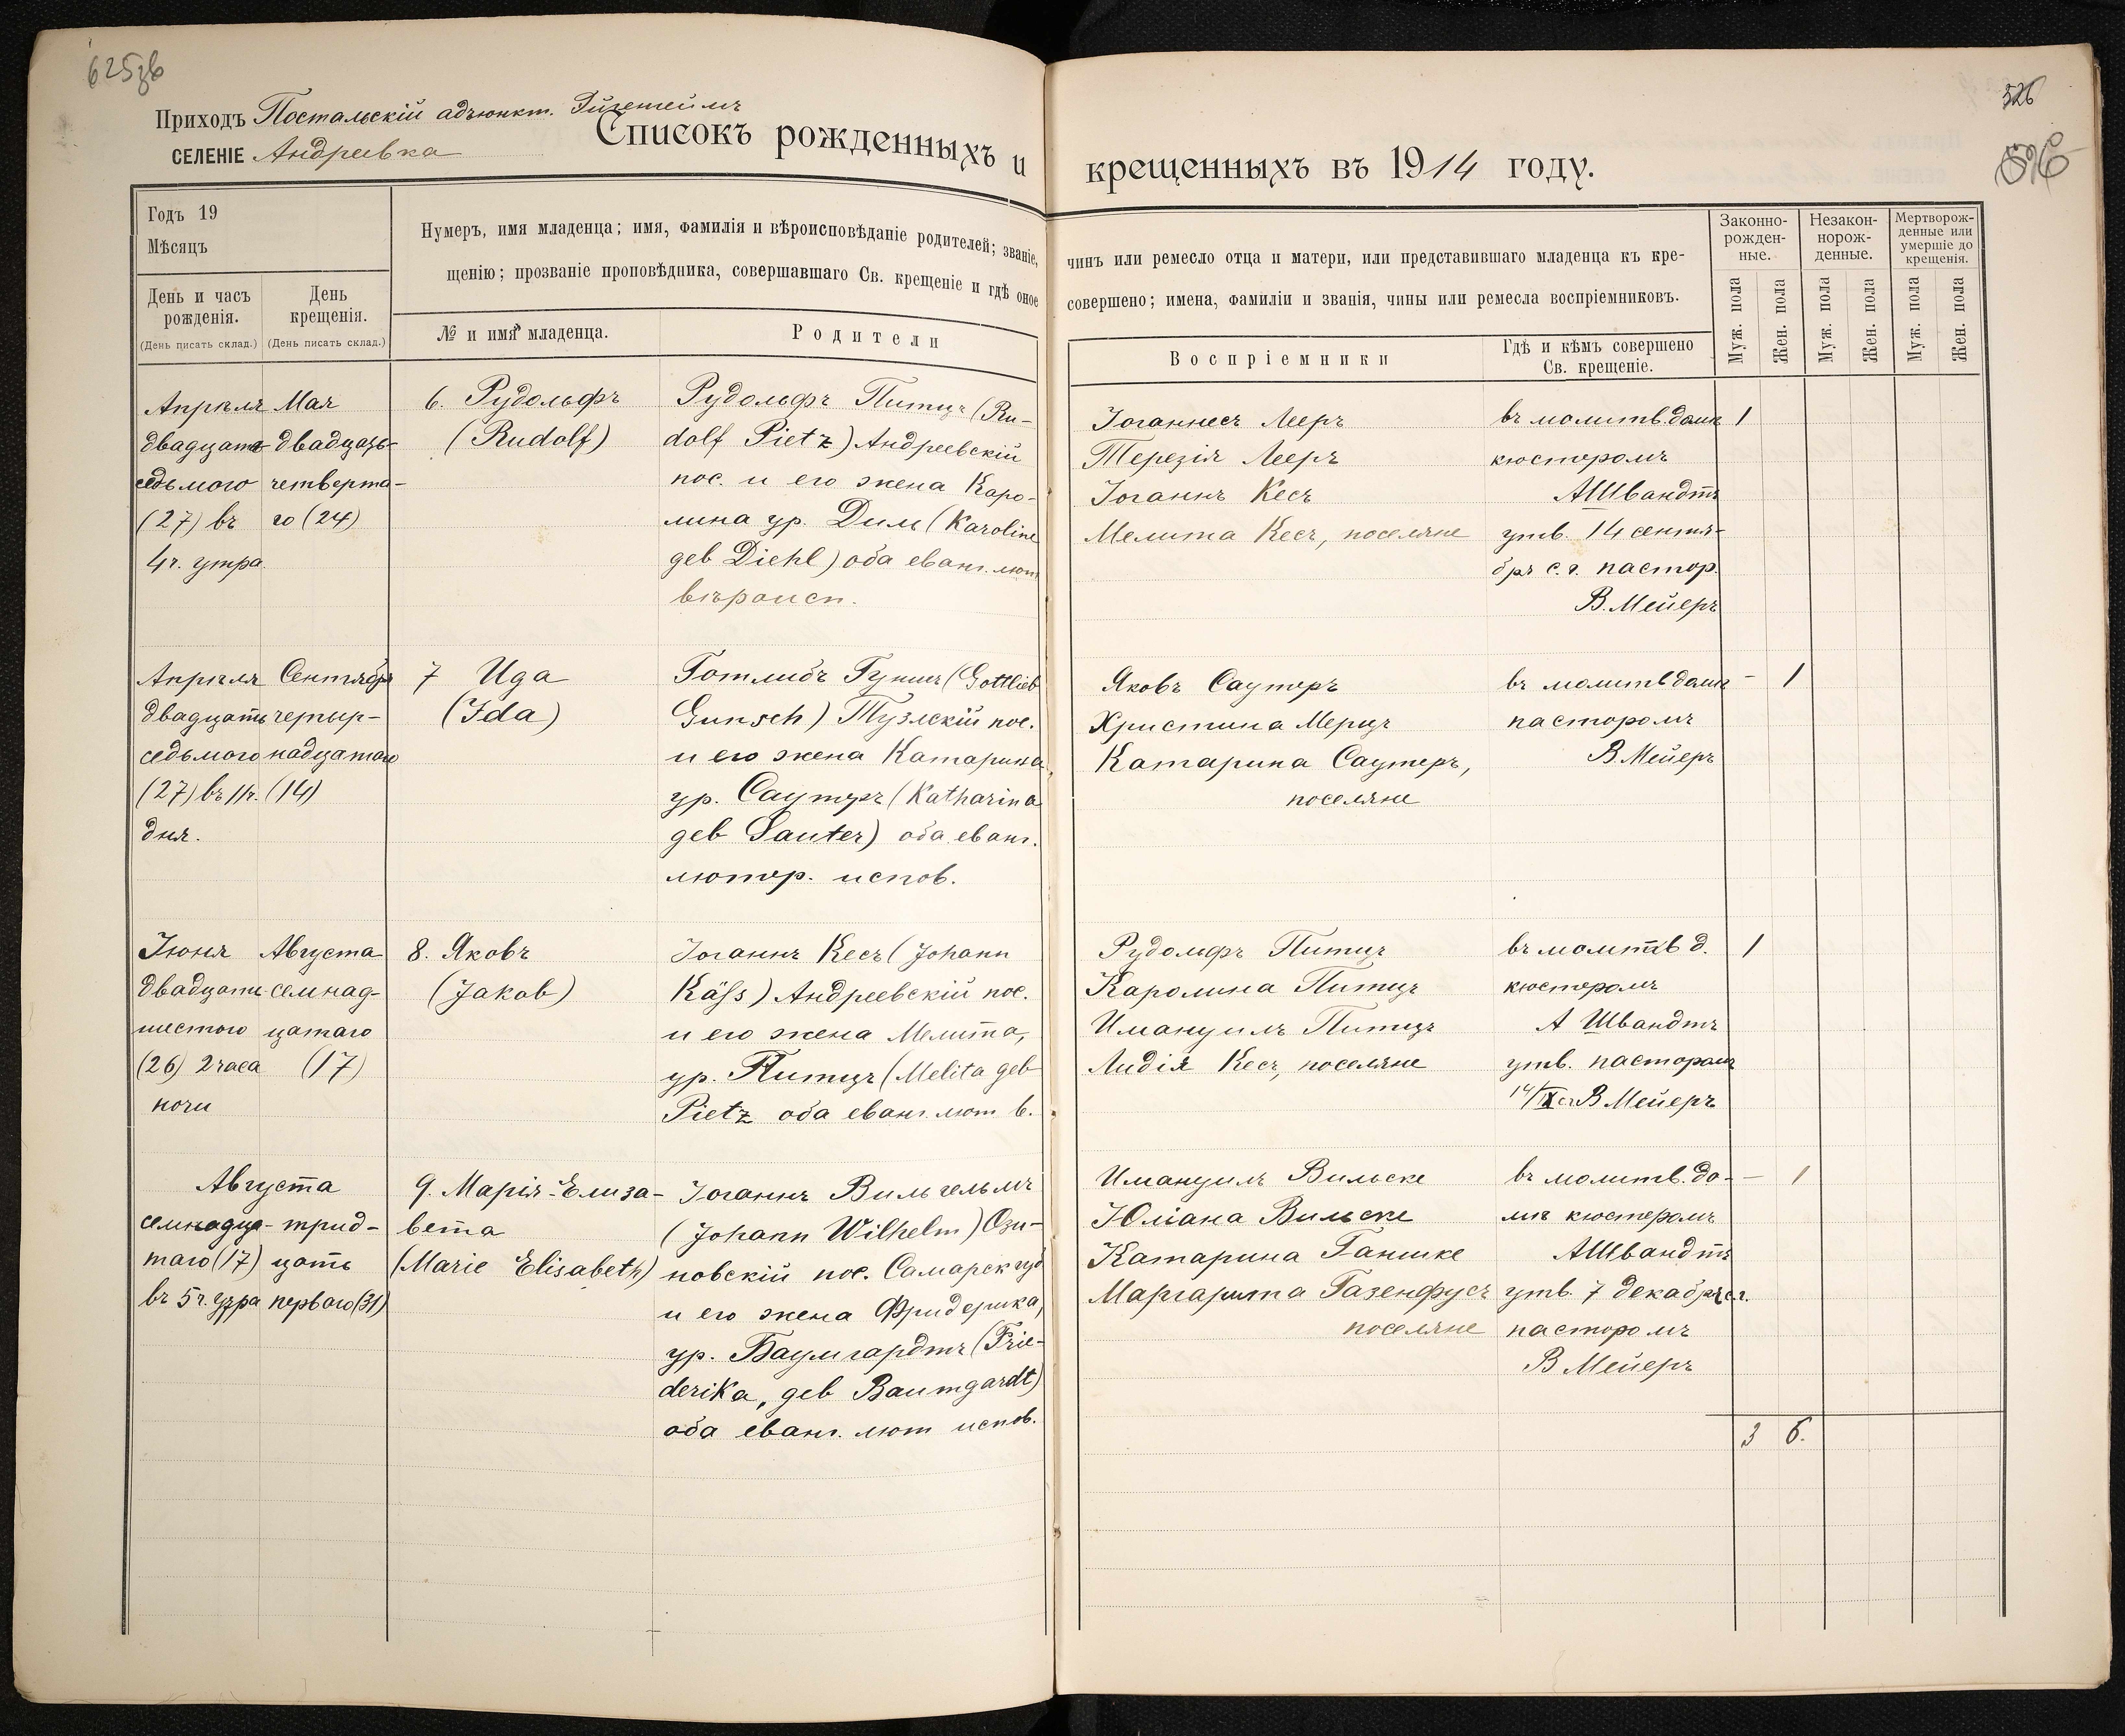 625зв
526
Приходъ Постальскій адъюнкт. Эйгенгеймъ
СЕЛЕНІЕ Андреевка
Списокъ рожденныхъ и крещенныхъ въ 1914 году.
Годъ 19
Мѣсяцъ
День и часъ рожденія.
(День писать склад.)
День крещенія.
(День писать склад.)
Нумеръ, имя младенца; имя, фамилія и вѣроисповѣданіе родителей; званіе, чинъ или ремесло отца и матери, или представившаго младенца къ кре-
щенію; прозваніе проповѣдника, совершавшаго Св. крещеніе и гдѣ оное совершено; имена, фамиліи и званія, чины или ремесла воспріемниковъ.
№ и имя младенца.
Родители
Воспріемники
Гдѣ и кѣмъ совершено
Св. крещеніе.
Законно-
рожден-
ные.
Незакон-
норож-
денные.
Мертворож-
денные или
умершіе до
крещенія.
Муж. пола
Жен. пола
Муж. пола
Жен. пола
Муж. пола
Жен. пола
Апрѣля
двадцать
седьмого
(27) въ
4ч. утра
Мая
двадцать-
четверта-
го (24)
6. Рудольфъ
(Rudolf)
Рудольфъ Питцъ (Ru-
dolf Pietz) Андреевскій
пос. и его жена Каро-
лина ур. Диль (Karoline
geb Diehl) оба еванг. лют
вѣроисп.
Іоганнесъ Лееръ
Терезія Лееръ
Іоганнъ Кесъ
Мелита Кесъ, поселяне
въ молитв. домѣ
кюстеромъ
А Швандтъ
утв. 14 сентя-
бря с.г. пастор.
В. Мейеръ
1
Апрѣля
двадцать
седьмого
(27) въ 11ч.
дня.
Сентября
четыр-
надцатого
(14)
7 Ида
(Ida)
Готлибъ Гуншъ (Gottlieb
Gunsch) Тузлскій пос.
и его жена Катарина
ур. Саутеръ (Katharina
geb Sauter) оба еванг.
лютер. испов.
Яковъ Саутеръ
Христина Мерцъ
Катарина Саутеръ,
поселяне
въ молитв домѣ
пасторомъ
В. Мейеръ
- 1
Іюня
двадцать
шестого
(26) 2 часа
ночи
Августа
семнад-
цатаго
(17)
8. Яковъ
(Jakob)
Іоганнъ Кесъ (Johann
Käſs) Андреевскій пос.
и его жена Мелита,
ур. Питцъ (Melita geb
Pietz оба еванг. лют в.
Рудольфъ Питцъ
Каролина Питцъ
Имануилъ Питцъ
Лидія Кесъ, поселяне
въ молитв д.
кюстеромъ
А Швандтъ
утв. пасторомъ
14/IX сг В Мейеръ
1
Августа
семнадца-
таго (17)
въ 5ч. утра
трид-
цать
перваго (31)
9. Марія-Елиза-
вета
(Marie Elisabeth)
Іоганнъ Вильгельмъ
(Johann Wilhelm) Ози-
новскій пос. Самарск губ
и его жена Фридерика,
ур. Баумгардтъ (Frie-
derika, geb Baumgardt)
оба еванг. лют испов.
Имануилъ Вильске
Юліана Вильске
Катарина Ганшке
Маргарита Газенфусъ
поселяне
въ молитв. до-
мѣ кюстеромъ
А Швандтъ
утв. 7 декабря с.г.
пасторомъ
В Мейеръ
- 1
3 6.